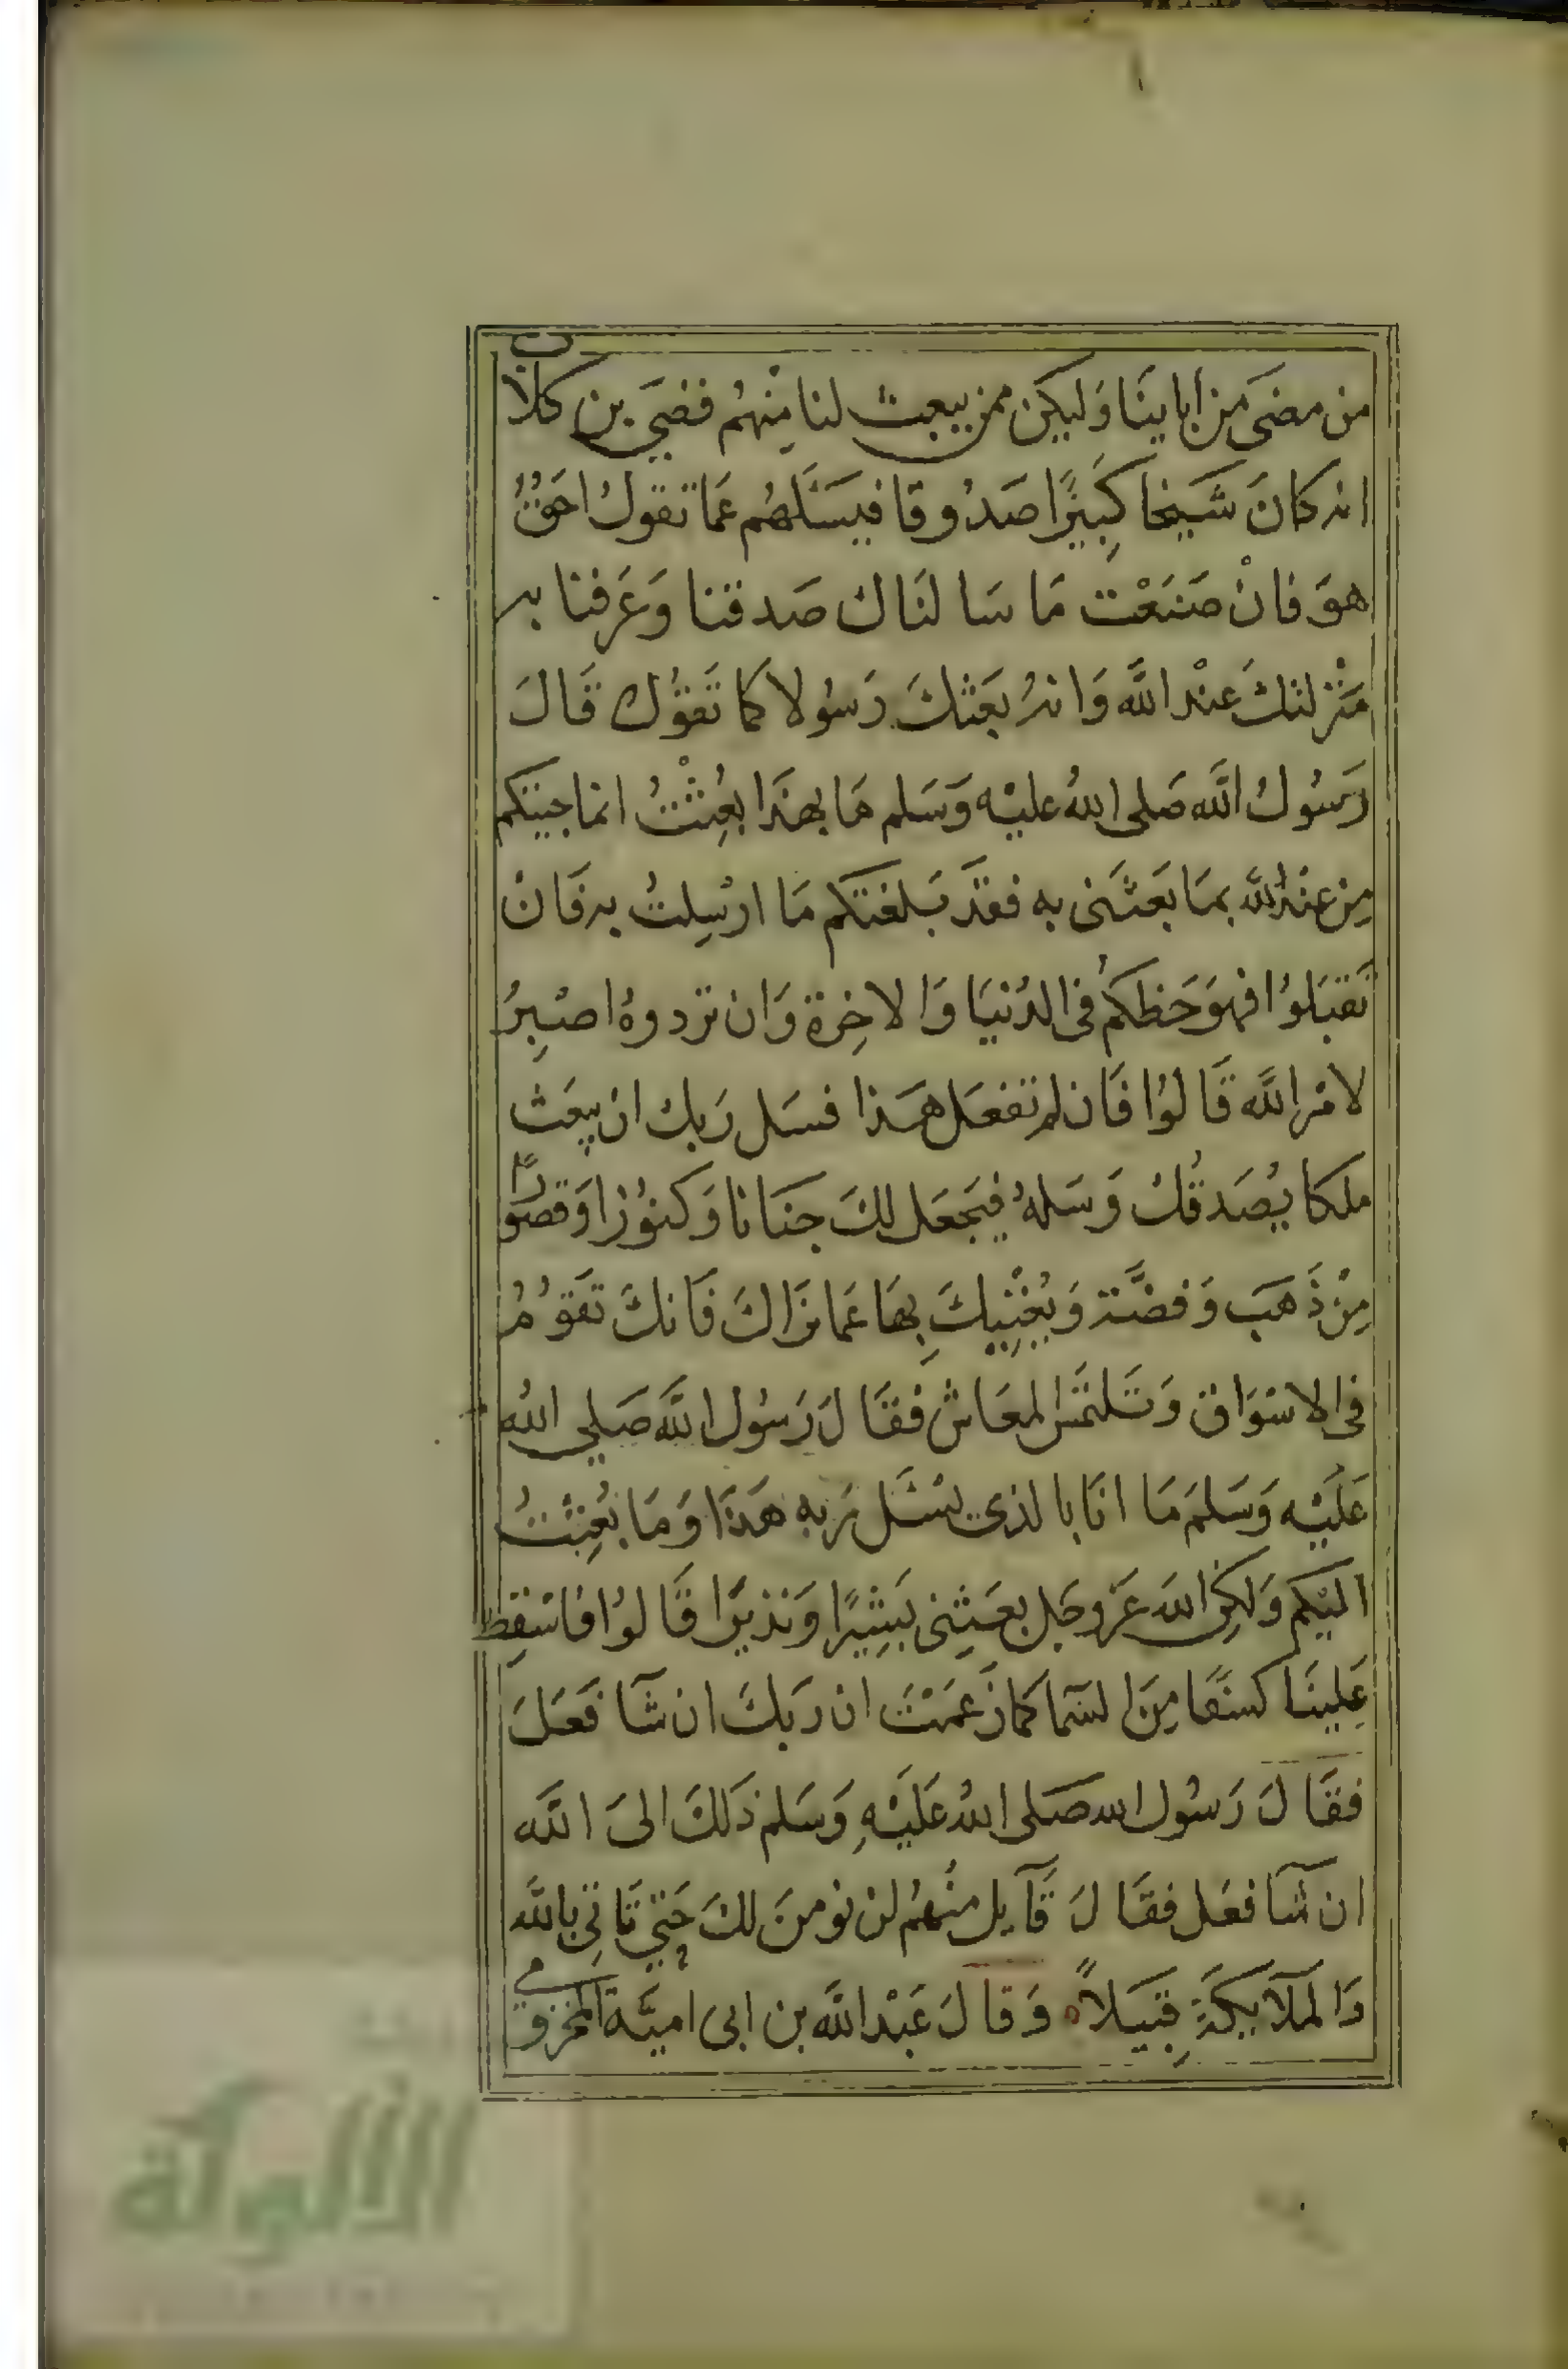 من مضى مِن ابايِنَا وَليكن ممن يبعث لنا مِنْهُم قصَي بن كلاب
انه كانَ شَيخا كَبِيرًا صَدُوقا فيسَئَلهُم عَما تقولُ احَقٌ
هوَ فانْ صَنَعْت مَا سَالنَاك صَدقنا وَعَرفنا به
مَنْزلتكَ عنْد اللَّه وَانهُ بعَثكَ رَسُولا كما تَقوُل قَالَ
رَسُولُ اللَّه صَلى اللهُ عليْه وَسَلم مَا بهذَا بُعِثْتُ انما جيتكم
مِن عنْد اللَّه بمَا بَعَثَنى به فقَد بَلغتكم مَا ارْسِلتُ به فَانْ
تَقبَلوُا فهوَ حَظكمُ فى الدُنيَا وَالاخِرة وَان تردوهُ اصْبِرُ
لامْر اللَّه قَالوُا فَان لم تفعَل هَذا فسَل رَبك ان يبعَث
ملكا يُصَدقُك وَسَلهُ فيَجعَل لكَ جنَانا وَكنوُزا وَقصوُرًا
مِنْ ذَهَب وَفضَّة وَيُغْنِيكَ بِهَا عَما نرَاكَ فَانكَ تَقوُمُ
فى الاسْوَاق وَتَلتمَس المعَاش فقَالَ رَسُول اللَّه صَلي اللهُ
عَلَيْه وَسَلمَ مَا انَا بالذى يسْئَل رَبه هَذَا وَمَا بُعِثْتُ
اليْكم وَلكِن اللهَ عَز وجَل بعَثِنى بَشِيرًا وَنذيرًا قَالوُا فاسْقِط
عَليْنَا كسَفًا مِنَ السَمآ كما زَعَمْتَ ان رَبكَ ان شَآ فَعَلَ
فقَالَ رَسُول الله صَلى اللهُ عَلَيْهِ وَسَلم ذَلكَ الىَ اللَّه
ان شَآ فعَل فقَالَ قَآيل منْهُم لن نومنَ لكَ حَتي تَاتِي باللَّه
وَالملآيكَةِ قبَيلاً وَقالَ عَبْد اللَّه بن ابى اميَّة المخزومي
الألوكة